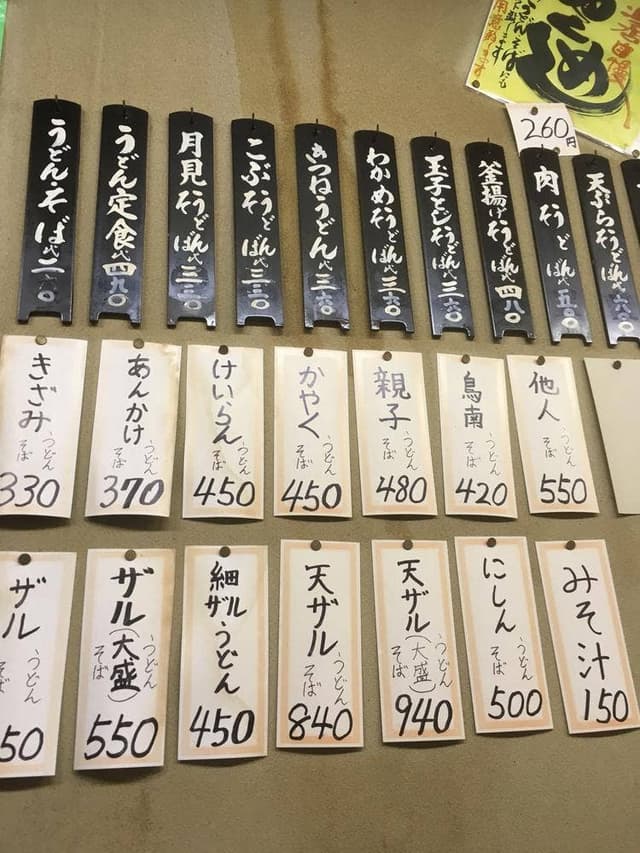 うどん・そば代二一〇
うどん定食代四九〇
月見うどんそば代三三〇
こぶうどんそば代三三〇
きつねうどん代三六〇
わかめうどんそば代三六〇
玉子とじうどんそば代三六〇
釜揚げうどんそば代四八〇
肉うどんそば代五五〇
天ぷらうどんそば代六八〇
260円
きざみ うどん そば 330
あんかけ うどん そば 370
けいらん うどん そば 450
かやく うどん そば 450
親子 うどん そば 480
鳥南 うどん そば 420
他人 うどん そば 550
ザル うどん そば 50
ザル(大盛) うどん そば 550
細ザルうどん 450
天ザル うどん そば 840
天ザル(大盛) うどん そば 940
にしん うどん そば 500
みそ汁 150